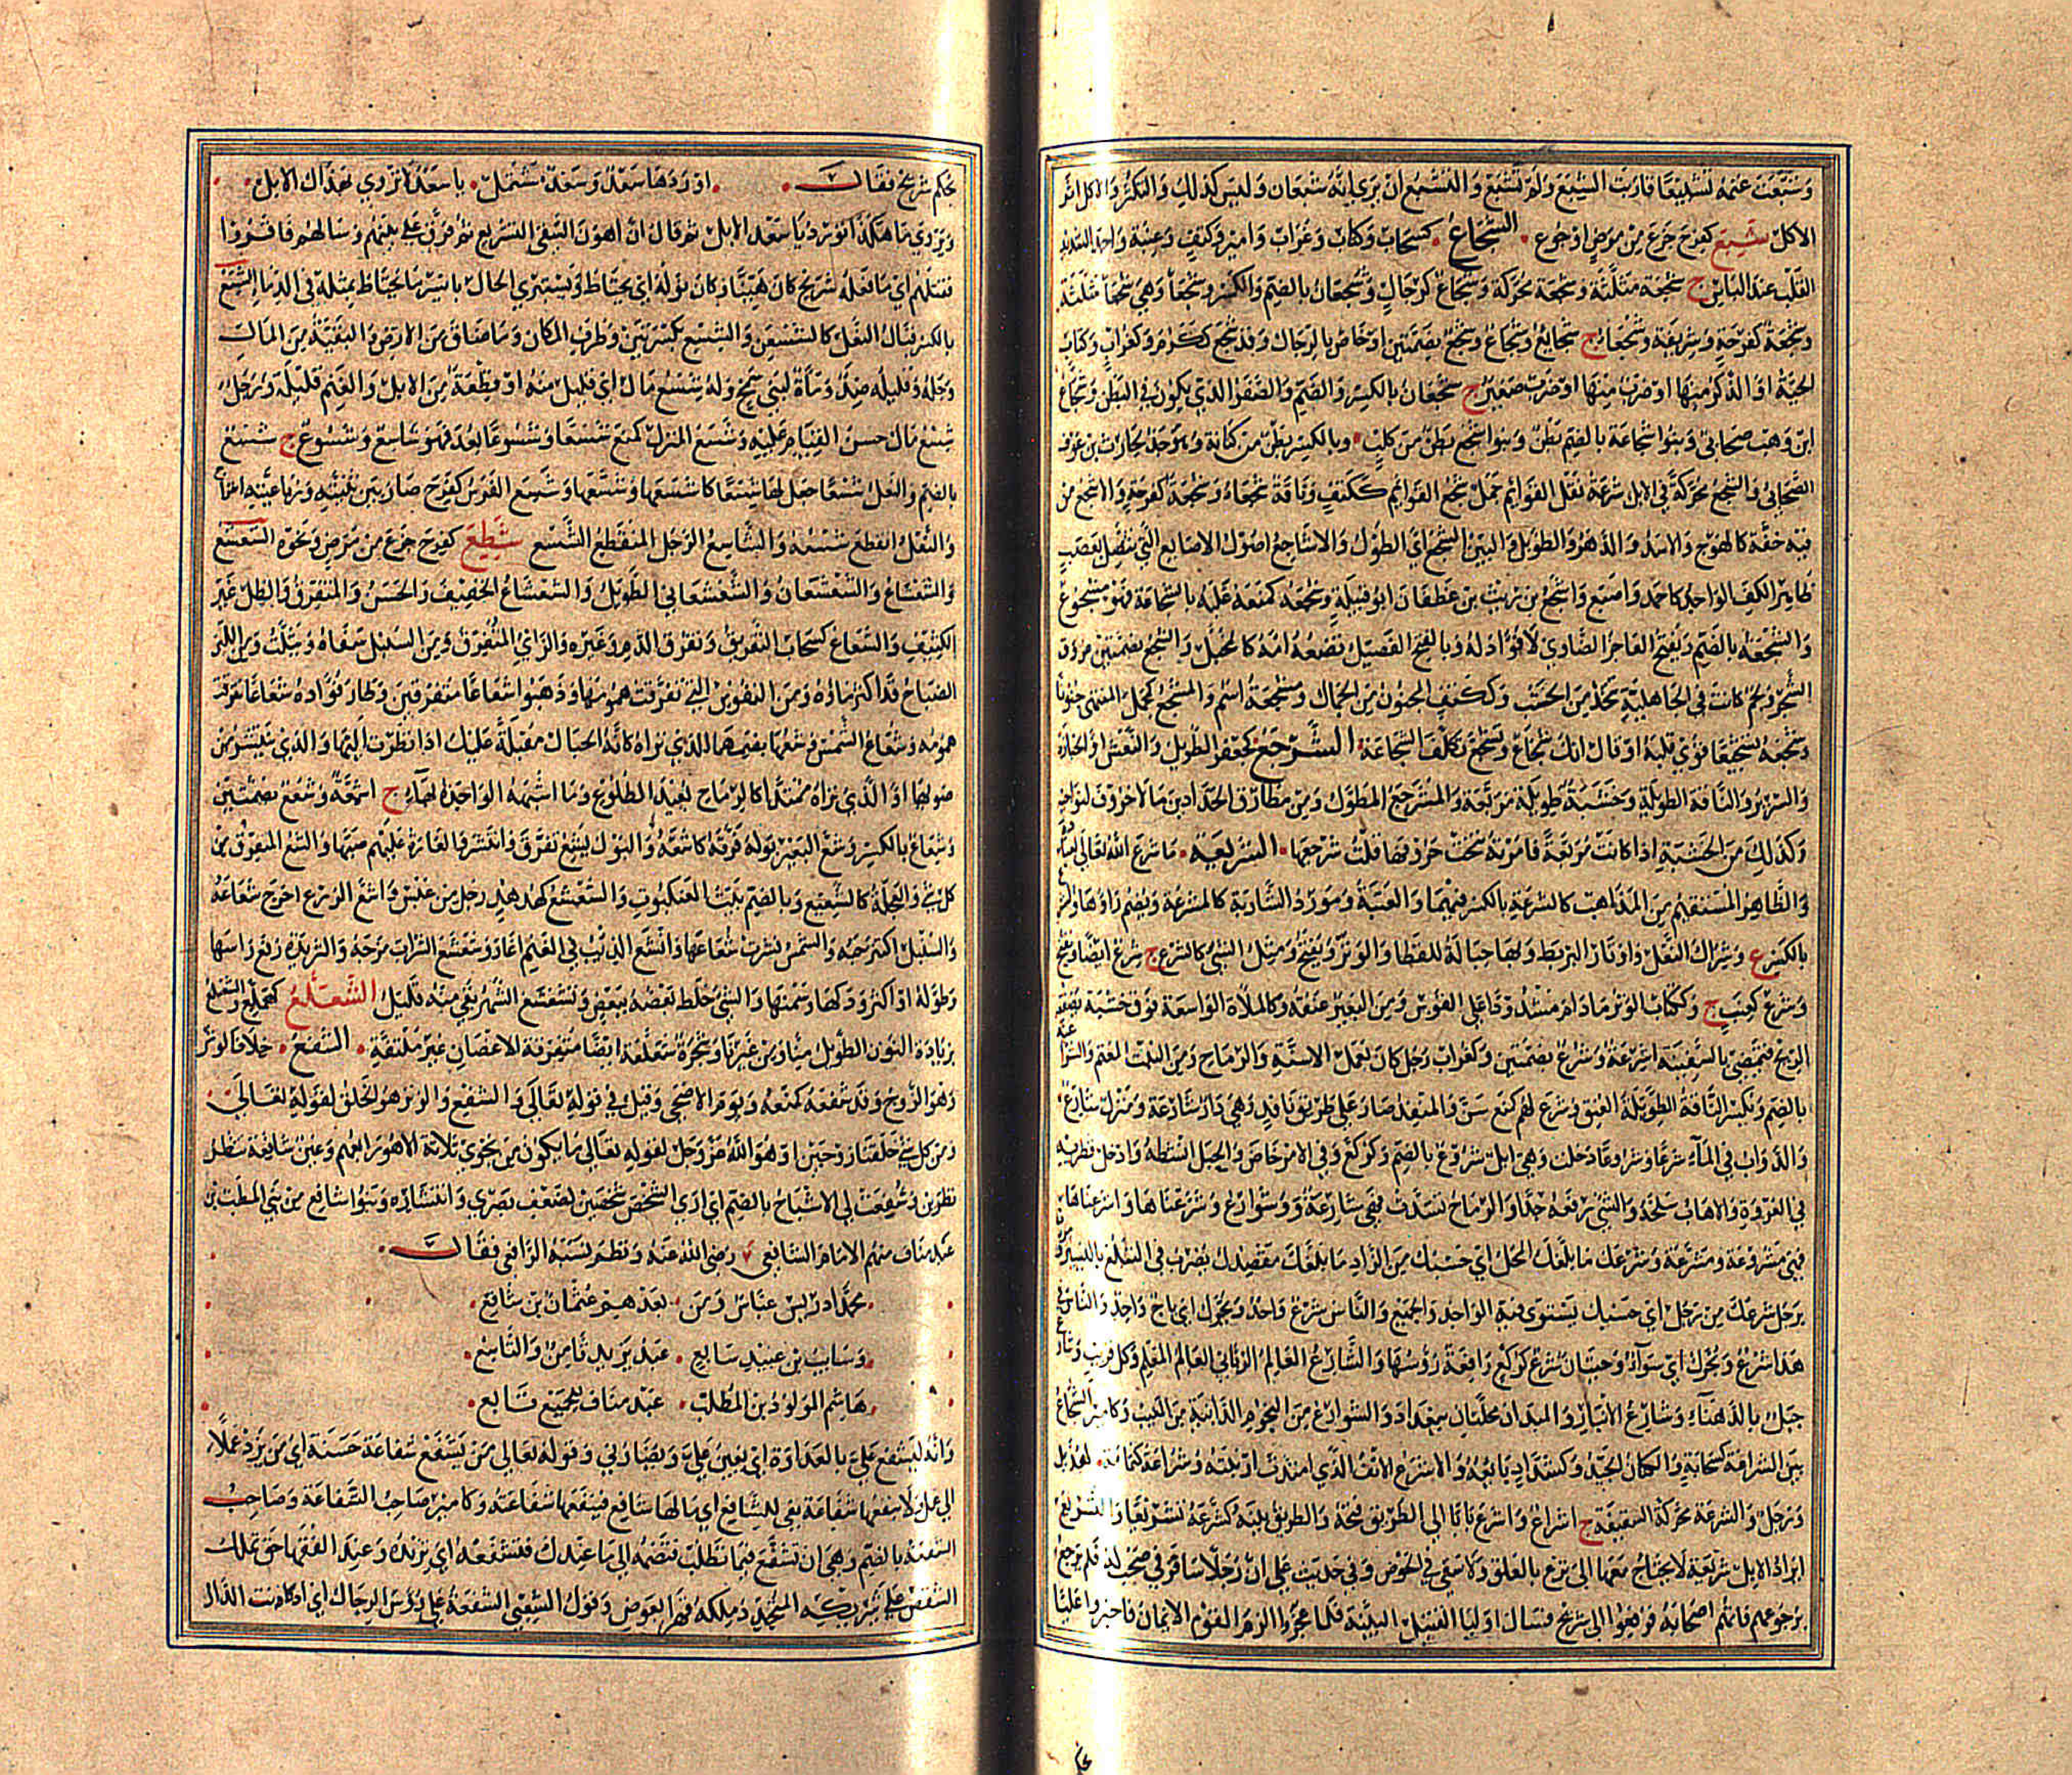 وشبعت غنمه تشبيعا قاربت الشبع ولم تشبع والتشبع ان يرى انه شبعان وليس كذلك والتكثر والاكل اثر
الاكل شتع كفرح جزع من مرض او جوع الشجاع كسحاب وكتاب وغراب وامير وكتف وعنبة واحمد الشديد
القلب عند الباس ج شجعة مثلثة وشجعة محركة وشجاع كرجال وشجعان بالضم والكسر وشجعا وهي شجاعة مثلثة
وشجعة كفرحة وشريفة وشجعاء ج شجائع وشجاع وشجع بضمتين او خاص بالرجال وقد شجع ككرم وكغراب وكتاب
الحية او الذكر منها او ضرب منها او ضرب صغير ج شجعان بالكسر والضم والصفر الذي يكون في البطن وشجاع
ابن وهب صحابي وبنو شجاعة بالضم بطن وبنو اشجع بطن من كلب وبالكسر بطن من كنانة وبن الحارث بن عوف
الصحابي والشجع محركة في الابل سرعة نقل القوائم جمل شجع القوائم ككتف وناقة شجعاء وشجعة كفرحة والاشجع من
فيه خفة كالهوج والاسد والدهر والطويل والبين الشجع اي الطول والاشاجع اصول الاصابع التي تتصل بعصب
ظاهر الكف الواحد كاحمد واصبع واشجع بن ريث بن غطفان ابو قبيلة وشجعه كمنعه غلبه بالشجاعة فهو مشجوع
والشجعة بالضم ويفتح العاجز الضاوي لا فؤاد له وبالفتح الفصيل تضعه امه كالمخبل والشجع بضمتين عروق
الشجر ولجم كانت في الجاهلية تتخذ من الخشب وككتف المجنون من الجمال ومشجعة اسم والمشجع كمجمل المنتهي جنونا
وشجعه تشجيعا قوى قلبه او قال انك شجاع وتشجع تكلف الشجاعة الشرجع كجعفر الطويل والنعش او الجنازة
والسرير والناقة الطويلة وخشبة طويلة مربعة والمشرجع المطول ومن مطارق الحدادين ما لا حروف لنواحيه
وكذلك من الخشبة اذا كانت مربعة فامرته بنحت حروفها قلت شرجعها الشريعة ما شرع الله تعالى لعباده
والظاهر المستقيم من المذاهب كالشرعة بالكسر فيهما والعتبة ومورد الشاربة كالمشرعة ويضم راؤها
بالكسر ع وشراك النعل واوتار البربط وبهاء حبالة للقطا والوتر ويفتح ومثل الشيء كالشرع ج شرع ايضا ويفتح
وشرع كعنب ج وككتاب الوتر ما دام مشدودا على القوس ومن البعير عنقه وكالملاة الواسعة فوق خشبة
الريح فتمضي بالسفينة اشرعة وشرع بضمتين وكغراب رجل كان يعمل الاسنة والرماح ومن النبت المعتم
بالضم وتكسر الناقة الطويلة العنق وشرع لهم كمنع سن والمنزل صار على طريق نافذ وهي دار شارعة ومنزل شارع
والدواب في الماء شرعا وشروعا دخلت وهي ابل شروع بالضم وكركع وفي الامر خاض والحبل انشطه وادخل قطريه
في العروة والاهاب سلخه والشيء رفعه جدا والرماح تسددت فهي شارعة وشوارع وشرعناها واشرعناها
فهي مشروعة ومشرعة وشرعك ما بلغك المحل اي حسبك من الزاد ما بلغك مقصدك يضرب في التبلغ باليسير
برجل شرعك من رجل اي حسبك يستوي فيه الواحد والجميع والناس شرع واحد ويحرك اي باج واحد والناس في
هذا شرع ويحرك اي سواء وحيتان شرع كركع رافعة رؤسها والشارع العالم الرباني العامل المعلم وكل قريب
جبل بالدهناء وشارع الانبار والميدان محلتان ببغداد والشوارع من النجوم الدانية من المغيب وكامير الشجاع
بين الشراعة كسحابة والكتان الجيد وكشداد بايعه والاشرع الانف الذي امتدت ارنبته وشراعة كثمامة لهذيل
ورجل والشرعة محركة السقيفة ج اشراع واشرع بابا الى الطريق فتحه والطريق بينه كشرعه تشريعا والتشريع
ايراد الابل شريعة لا يحتاج معها الى نزع بالعلق ولا سقي في الحوض وفي حديث علي ان رجلا سافر في صحب له فلم يرجع
برجوعهم فاتهم اصحابه فرفعوا الى شريح فسال اوليا القتيل البينة فلما عجزوا الزم القوم الايمان فاخبروا عليا
بحكم
بحكم شريح فقال اوردها سعد وسعد مشتمل يا سعد لا تروى بهذاك الابل
ويروى ما هكذا تورد يا سعد الابل ثم قال ان اهون السقي التشريع ثم فرق علي بينهم وسالهم فاقروا
فقتلهم اي ما فعله شريح كان هينا وكان نوله اي يحتاط ويستبري الحال بايسر ما يحتاط بمثله في الدماء الشسع
بالكسر قبال النعل كالشسعن والشسع بكسرتين وطرف المكان وما ضاق من الارض والبقية من المال
وجله وقليله ضد وماءة لبني شمخ وله شسع مال اي قليل منه او قطعة من الابل والغنم قليلة ورجل
شسع مال حسن القيام عليه وشسع المنزل كمنع شسعا وشسوعا بعد فهو شاسع وشسوع ج شسع
بالضم والنعل شسعا جعل لها شسعا كاشسعها وشسعها وشسع الفرس كفرح صار بين ثنيته ورباعيته انفراج
والنعل انقطع شسعه والشاسع الرجل المنقطع الشسع شطع كفرح جزع من مرض ونحوه الشعشع
والشعشاع والشعشعان والشعشعاني الطويل والشعشاع الخفيف والحسن والمتفرق والظل غير
الكثيف والشعاع كسحاب التفريق وتفرق الدم وغيره والراي المتفرق ومن السنبل سفاه ويثلث ومن اللبن
الضياح قد اكثر ماؤه ومن النفوس التي تفرقت همومها وذهبوا شعاعا متفرقين وطار فؤاده شعاعا تفرقت
همومه وشعاع الشمس وشعها بضمهما الذي تراه كانه الحبال مقبلة عليك اذا نظرت اليها والذي ينتشر من
ضوئها او الذي تراه ممتدا كالرماح بعيد الطلوع وما اشبهه الواحدة بهاء ج اشعة وشعع بضمتين
وشعاع بالكسر وشع البعير بوله فرقه كاشعه والبول يشع تفرق وانتشر والغارة عليهم صبها والشع المتفرق من
كل شيء والعجلة كالشعيع وبالضم بيت العنكبوت والشعشع كهدهد رجل من عبس واشع الزرع اخرج شعاعه
والسنبل اكتنز حبه والشمس نشرت شعاعها وانشع الذئب في الغنم اغار وشعشع الشراب مزجه والثريدة رفع راسها
وطوله او اكثر ودكها وسمنها والشيء خلط بعضه ببعض وتشعشع الشهر بقي منه قليل الشعلع كهملع والشعنلع
بزيادة النون الطويل منا ومن غيرنا وشجرة شعلعة ايضا متفرقة الاغصان غير ملتفة الشفع خلاف الوتر
وهو الزوج وقد شفعه كمنعه ويوم الاضحى وقيل في قوله تعالى والشفع والوتر هو الخلق لقوله تعالى
ومن كل شيء خلقنا زوجين او هو الله عز وجل لقوله تعالى ما يكون من نجوى ثلاثة الا هو رابعهم وعين شافعة تنظر
نظرين وشفعت لي الاشباح بالضم اي ارى الشخص شخصين لضعف بصري وانتشاره وبنو شافع من بني المطلب بن
عبد مناف منهم الامام الشافعي رضي الله عنه ونظم نسبه الرافعي فقال
محمد ادريس عباس ومن بعدهم عثمان بن شافع
وسايب بن عبيد سابع عبد يزيد ثامن والتاسع
هاشم المولود بن المطلب عبد مناف للجميع تابع
وانه ليشفع علي بالعداوة اي يعين علي ويضادني وقوله تعالى من يشفع شفاعة حسنة اي من يزد عملا
الى عمل ولا تنفعها شفاعة نفي للشافع اي ما لها شافع فتنفعها شفاعته وكامير صاحب الشفاعة وصاحب
الشفعة بالضم وهي ان تشفع فيما تطلب فتضمه الى ما عندك فتشفعه اي تزيده وعند الفقها حق تملك
الشقص على شريكه المتجدد ملكه قهرا بعوض وقول الشعبي الشفعة على رؤس الرجال اي اذا كانت الدار